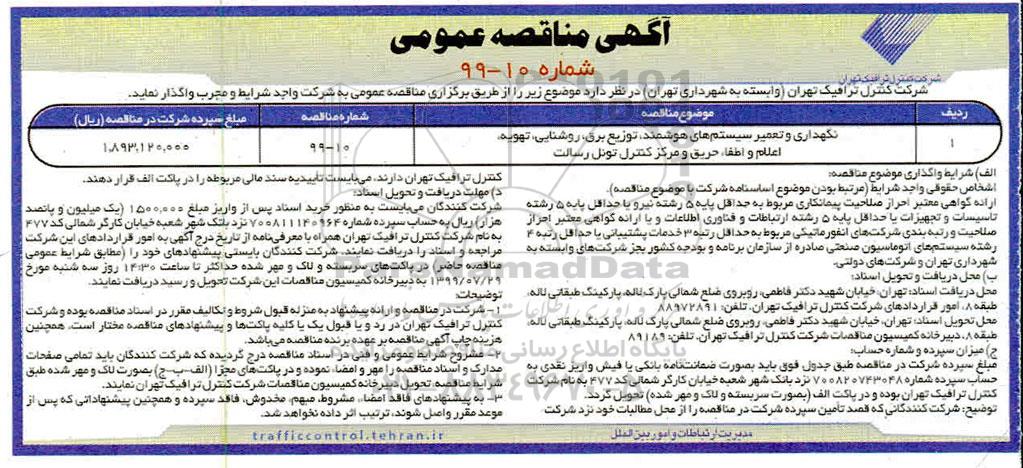 آگهی مناقصه عمومی
شماره ۱۰-۹۹
شرکت کنترل ترافیک تهران
شرکت کنترل ترافیک تهران (وابسته به شهرداری تهران) در نظر دارد موضوع زیر را از طریق برگزاری مناقصه عمومی به شرکت واجد شرایط و مجرب واگذار نماید.
ردیف موضوع مناقصه شماره مناقصه مبلغ سپرده شرکت در مناقصه (ریال)
۱ نگهداری و تعمیر سیستم‌های هوشمند، توزیع برق، روشنایی، تهویه، ۱۰-۹۹ ۱,۸۹۳,۱۲۰,۰۰۰
اعلام و اطفاء حریق و مرکز کنترل تونل رسالت
الف) شرایط واگذاری موضوع مناقصه:
اشخاص حقوقی واجد شرایط (مرتبط بودن موضوع اساسنامه شرکت با موضوع مناقصه).
ارائه گواهی معتبر احراز صلاحیت پیمانکاری مربوط به حداقل پایه ۵ رشته نیرو یا حداقل پایه ۵ رشته
تاسیسات و تجهیزات یا حداقل پایه ۵ رشته ارتباطات و فناوری اطلاعات و یا ارائه گواهی معتبر احراز
صلاحیت و رتبه بندی شرکت‌های انفورماتیکی مربوط به حداقل رتبه ۳ خدمات پشتیبانی یا حداقل رتبه ۴
رشته سیستم‌های اتوماسیون صنعتی صادره از سازمان برنامه و بودجه کشور بجز شرکت‌های وابسته به
شهرداری تهران و شرکت‌های دولتی.
ب) محل دریافت و تحویل اسناد:
محل دریافت اسناد: تهران، خیابان شهید دکتر فاطمی، روبروی ضلع شمالی پارک لاله، پارکینگ طبقاتی لاله،
طبقه ۸، امور قراردادهای شرکت کنترل ترافیک تهران. تلفن: ۸۸۹۷۲۸۹۱
محل تحویل اسناد: تهران، خیابان شهید دکتر فاطمی، روبروی ضلع شمالی پارک لاله، پارکینگ طبقاتی لاله،
طبقه ۸، دبیرخانه کمیسیون مناقصات شرکت کنترل ترافیک تهران. تلفن: ۸۹۱۸۹
ج) میزان سپرده و شماره حساب:
مبلغ سپرده شرکت در مناقصه طبق جدول فوق باید بصورت ضمانتنامه بانکی یا فیش واریز نقدی به
حساب سپرده شماره ۷۰۰۸۲۰۷۴۳۰۴۸ نزد بانک شهر شعبه خیابان کارگر شمالی کد ۴۷۷ به نام شرکت
کنترل ترافیک تهران بوده و در پاکت الف (بصورت سربسته و لاک و مهر شده) تحویل گردد.
توضیح: شرکت کنندگانی که قصد تأمین سپرده شرکت در مناقصه را از محل مطالبات خود نزد شرکت
کنترل ترافیک تهران دارند، می‌بایست تأییدیه سند مالی مربوطه را در پاکت الف قرار دهند.
د) مهلت دریافت و تحویل اسناد:
شرکت کنندگان می‌بایست به منظور خرید اسناد پس از واریز مبلغ ۱,۵۰۰,۰۰۰ (یک میلیون و پانصد
هزار) ریال به حساب سپرده شماره ۷۰۰۸۱۱۱۴۰۹۶۴ نزد بانک شهر شعبه خیابان کارگر شمالی کد ۴۷۷
به نام شرکت کنترل ترافیک تهران همراه با معرفی‌نامه از تاریخ درج آگهی به امور قراردادهای این شرکت
مراجعه و اسناد را دریافت نمایند. شرکت کنندگان بایستی پیشنهادهای خود را (مطابق شرایط عمومی
مناقصه حاضر) در پاکت‌های سربسته و لاک و مهر شده حداکثر تا ساعت ۱۴:۳۰ روز سه شنبه مورخ
۱۳۹۹/۰۷/۲۹ به دبیرخانه کمیسیون مناقصات این شرکت تحویل و رسید دریافت نمایند.
توضیحات:
۱- شرکت در مناقصه و ارائه پیشنهاد به منزله قبول شروط و تکالیف مقرر در اسناد مناقصه بوده و شرکت
کنترل ترافیک تهران در رد و یا قبول یک یا کلیه پاکت‌ها و پیشنهادهای مناقصه مختار است. همچنین
هزینه چاپ آگهی مناقصه بر عهده برنده مناقصه می‌باشد.
۲- مشروح شرایط عمومی و فنی در اسناد مناقصه درج گردیده که شرکت کنندگان باید تمامی صفحات
مدارک و اسناد مناقصه را مهر و امضاء نموده و در پاکت‌های مجزا (الف-ب-ج) بصورت لاک و مهر شده طبق
شرایط مناقصه، تحویل دبیرخانه کمیسیون مناقصات شرکت کنترل ترافیک تهران نمایند.
۳- به پیشنهادهای فاقد امضاء، مشروط، مبهم، مخدوش، فاقد سپرده و همچنین پیشنهاداتی که پس از
موعد مقرر واصل شوند، ترتیب اثر داده نخواهد شد.
مدیریت ارتباطات و امور بین الملل
trafficcontrol.tehran.ir